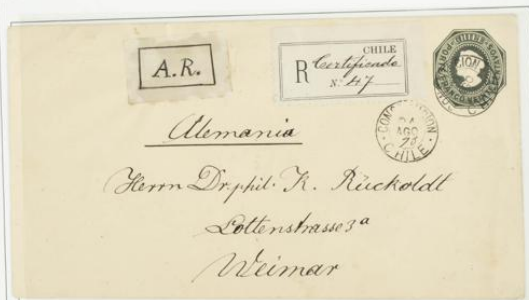 CHILE
A.R.
R Certificado
N. 47
CONSTITUCION
AGO
CHILE
Alemania
Herrn Dr. phil. K. Rückoldt
Lottenstrasse 3a
Weimar